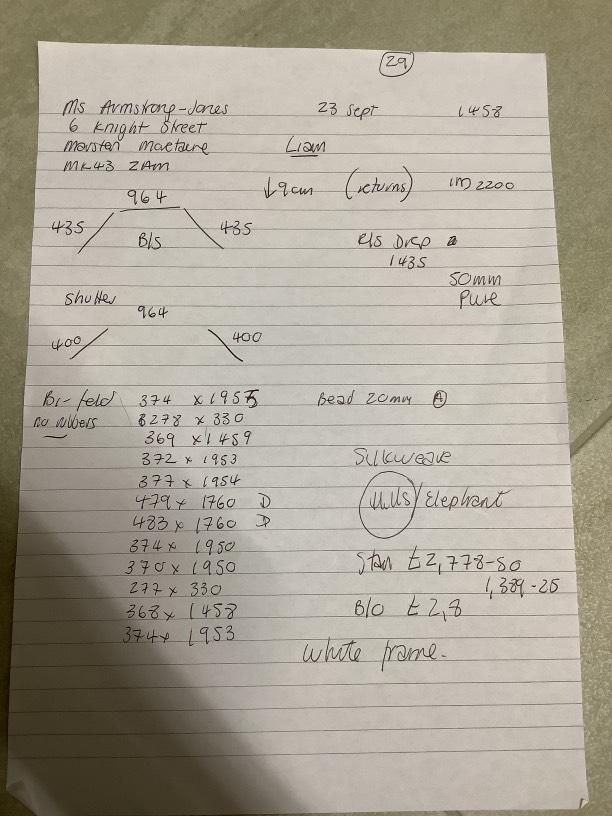 29
Ms Armstrong-Jones 23 Sept 1458
6 Knight Street
Marsten Moretaine Liam
MK43 2AM
↓9cm (returns) IM 2200
964
435 435
B/s Els Drop
1435
50mm
Pure
Shutter
964
400 400
Bi-fold 374 x 1955 Bead 20mm A
no nibbers 278 x 330
369 x 1459
372 x 1953 Silkweave
377 x 1954
479 x 1760 D /Elephant
483 x 1760 D
374 x 1950
370 x 1950 Stan £2,778-50
277 x 330 1,389-25
368 x 1458 B/O £2,8
374 x 1953
White frame.